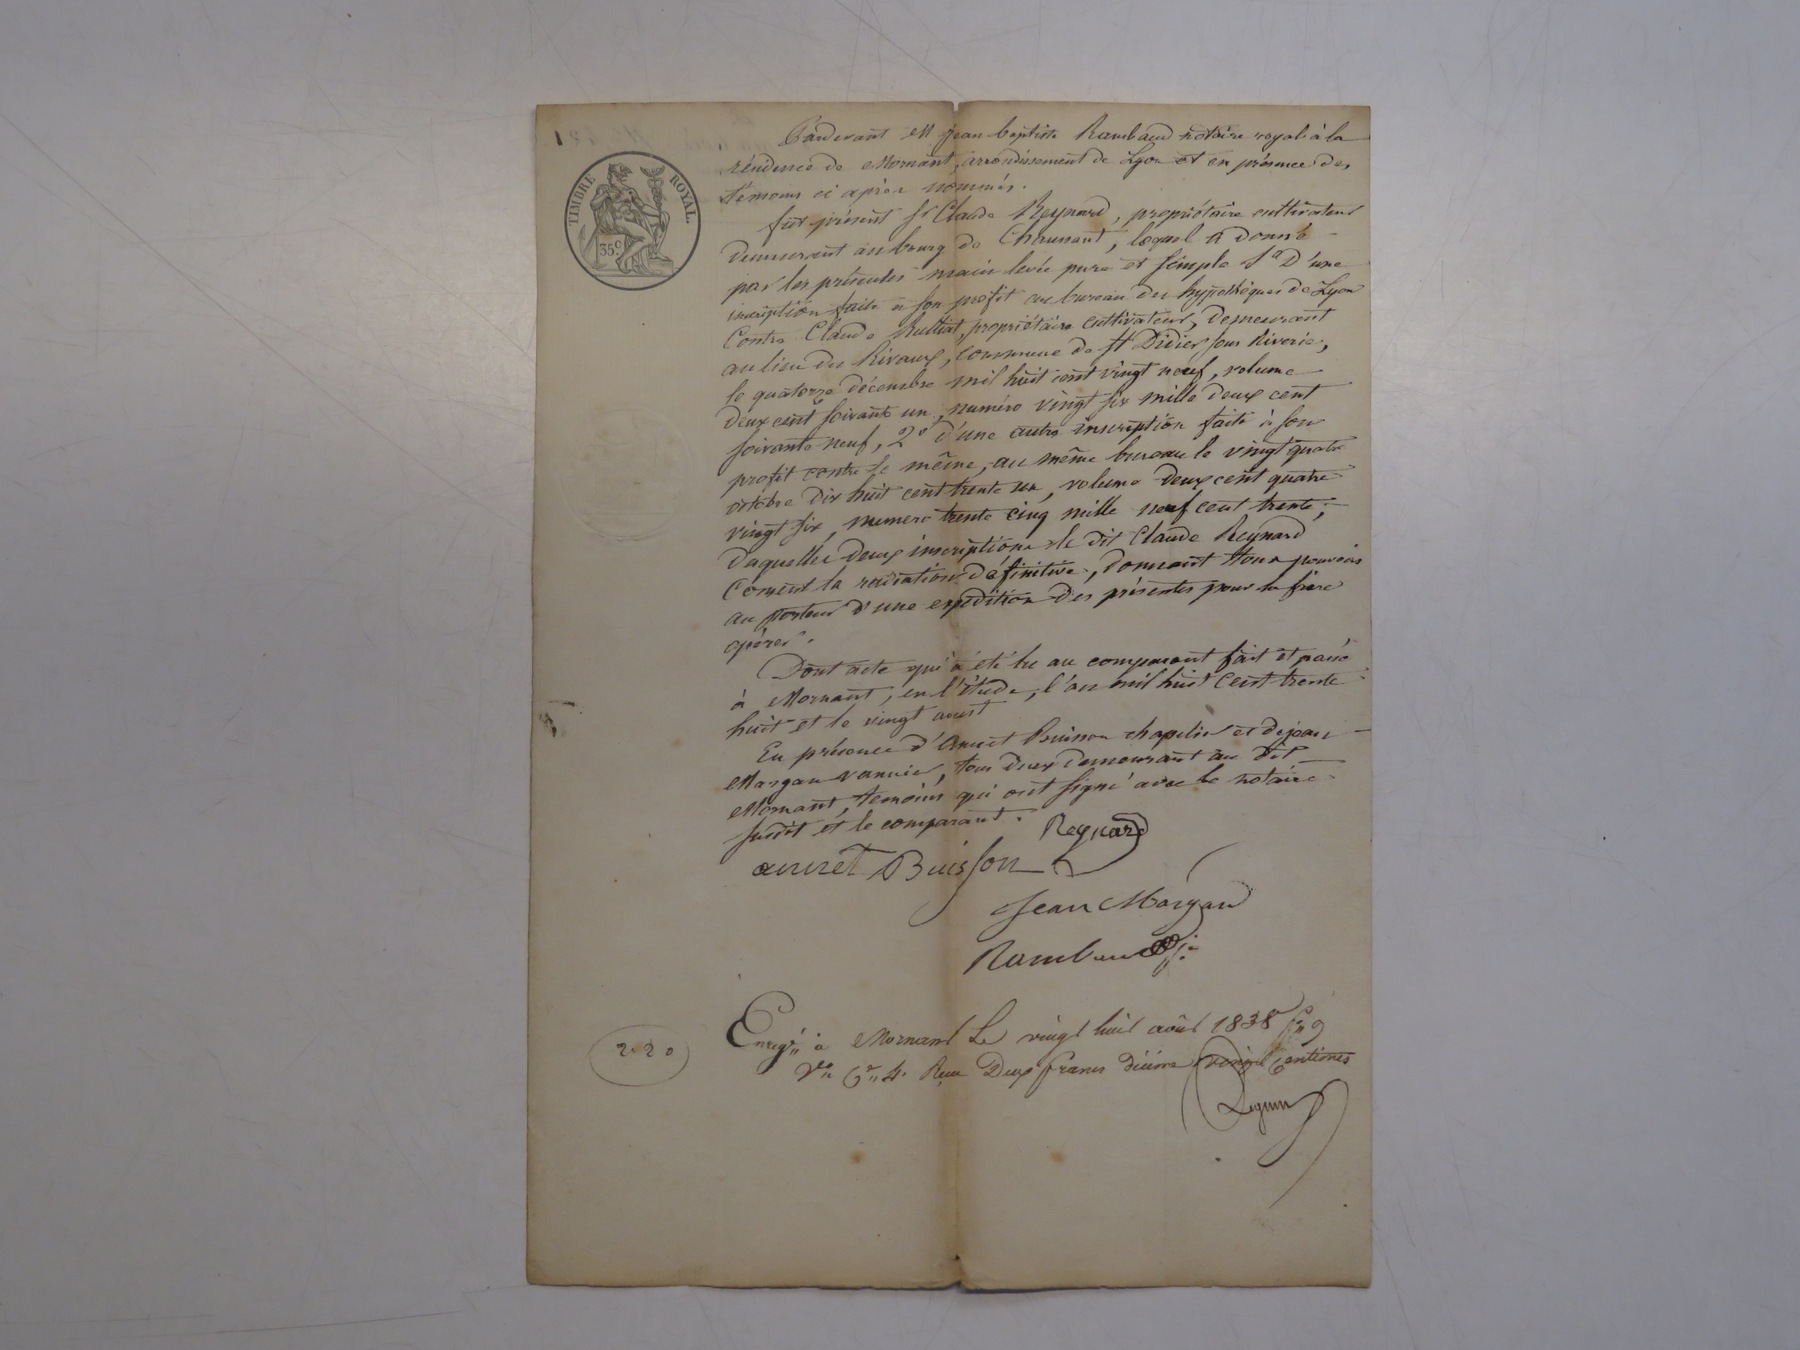 TIMBRE ROYAL.
35c.
Pardevant M Jean baptiste Rambaud notaire royal à la
résidence de Mornant, arrondissement de Lyon et en présence des
témoins ci après nommés.
fut présent Sr Claude Reynard, propriétaire cultivateur
demeurant au bourg de Chaussant, lequel a donné
par les présentes main levée pure et simple 1o D'une
inscription faite à son profit au bureau des hypothèques de Lyon
Contre Claude Rulliat, propriétaire cultivateur, demeurant
au lieu du Rivaux, commune de St Didier sous Riverie,
le quatorze décembre mil huit cent vingt neuf, volume
deux cent soixante un, numéro vingt six mille deux cent
soixante neuf, 2o d'une autre inscription faite à son
profit contre le même, au même bureau le vingt quatre
octobre dix huit cent trente un, volume deux cent quatre
vingt six, numero trente cinq mille neuf cent trente;
desquelles deux inscriptions le dit Claude Reynard
consent la radiation définitive, donnant tous pouvoirs
au porteur d'une expédition des présentes pour la faire
opérer.
Dont acte qui a été lu au comparant fait et passé
à Mornant, en l'étude, l'an mil huit cent trente
huit et le vingt aoust
En présence d'Annet Buisson chapelier et de jean
Margan vannier, tous deux demeurant au dit
Mornant, temoins qui ont signé avec le notaire
susdit et le comparant.
Reynard
annet Buisson
Jean Margan
Rambaud
Enregé à Mornant Le vingt huit août 1838 fo 9
2.20
Vo C 4. Reçu Deux francs dixième vingt Centimes